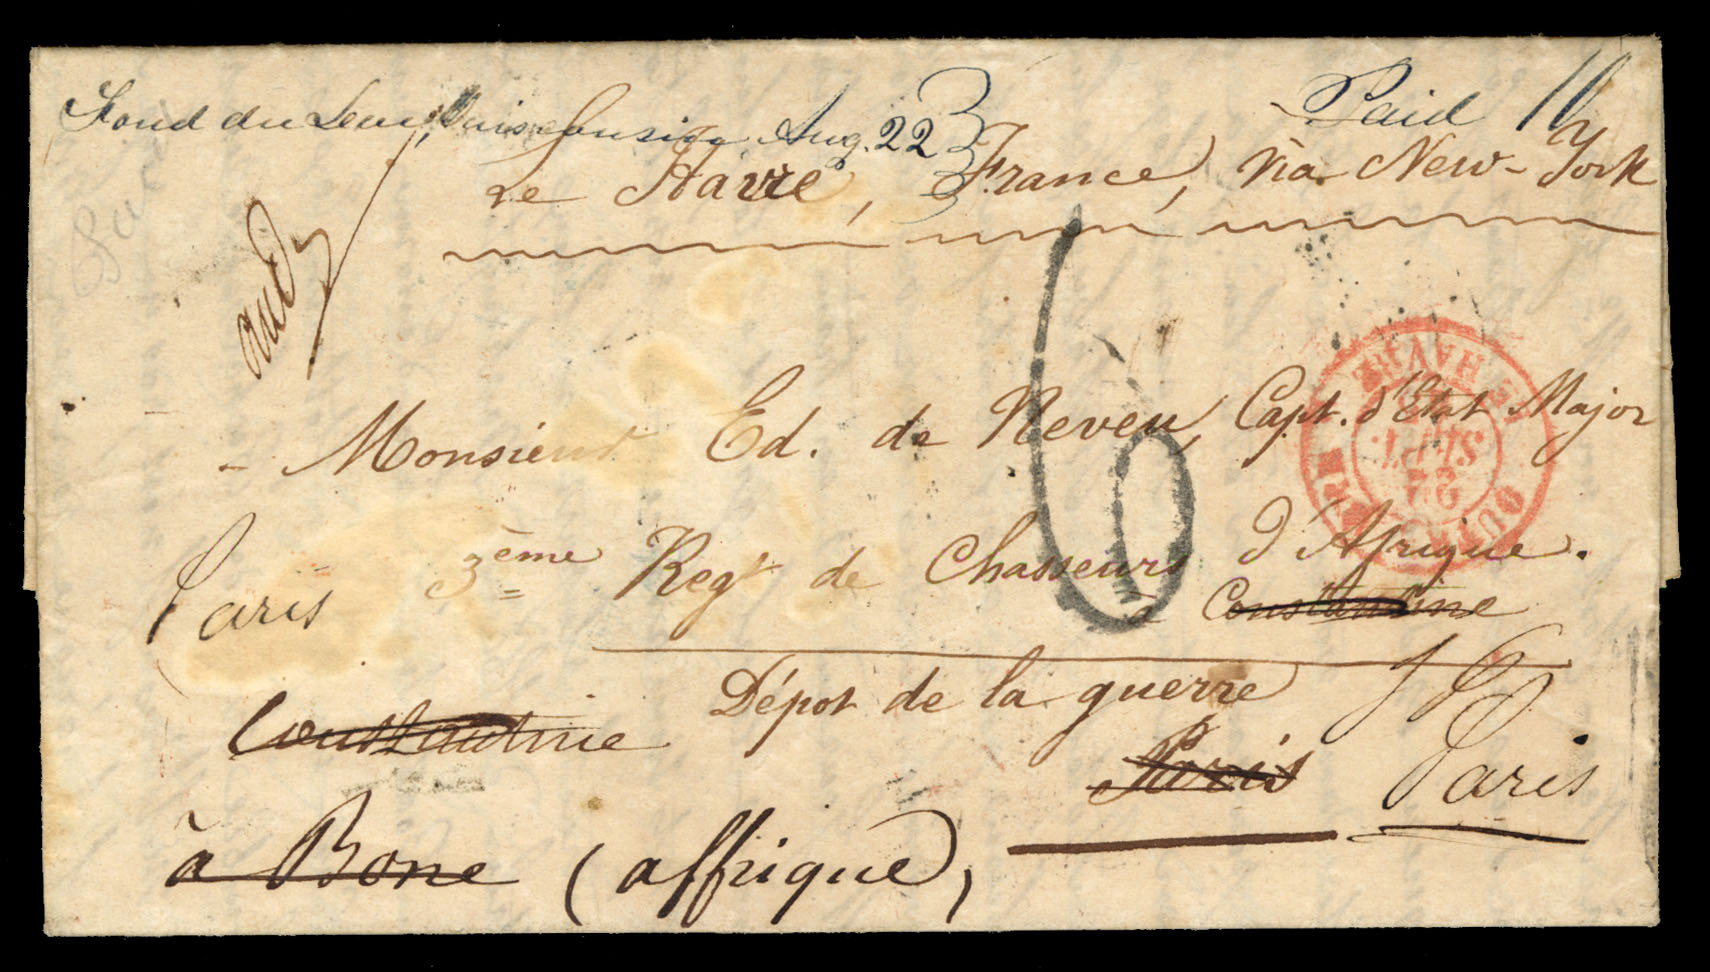 Fond du Lac, Wisconsin Aug. 22
Paid 10
Le Havre, France, via New-York
6
OUTRE MER LE HAVRE
22 SEPT.
Monsieur Ed. de Neveu, Capt. d'Etat Major
3ème Regt de Chasseurs d'Afrique.
Paris
Constantine
Dépot de la guerre
Constantine
Paris
Paris
à Bone (affrique)